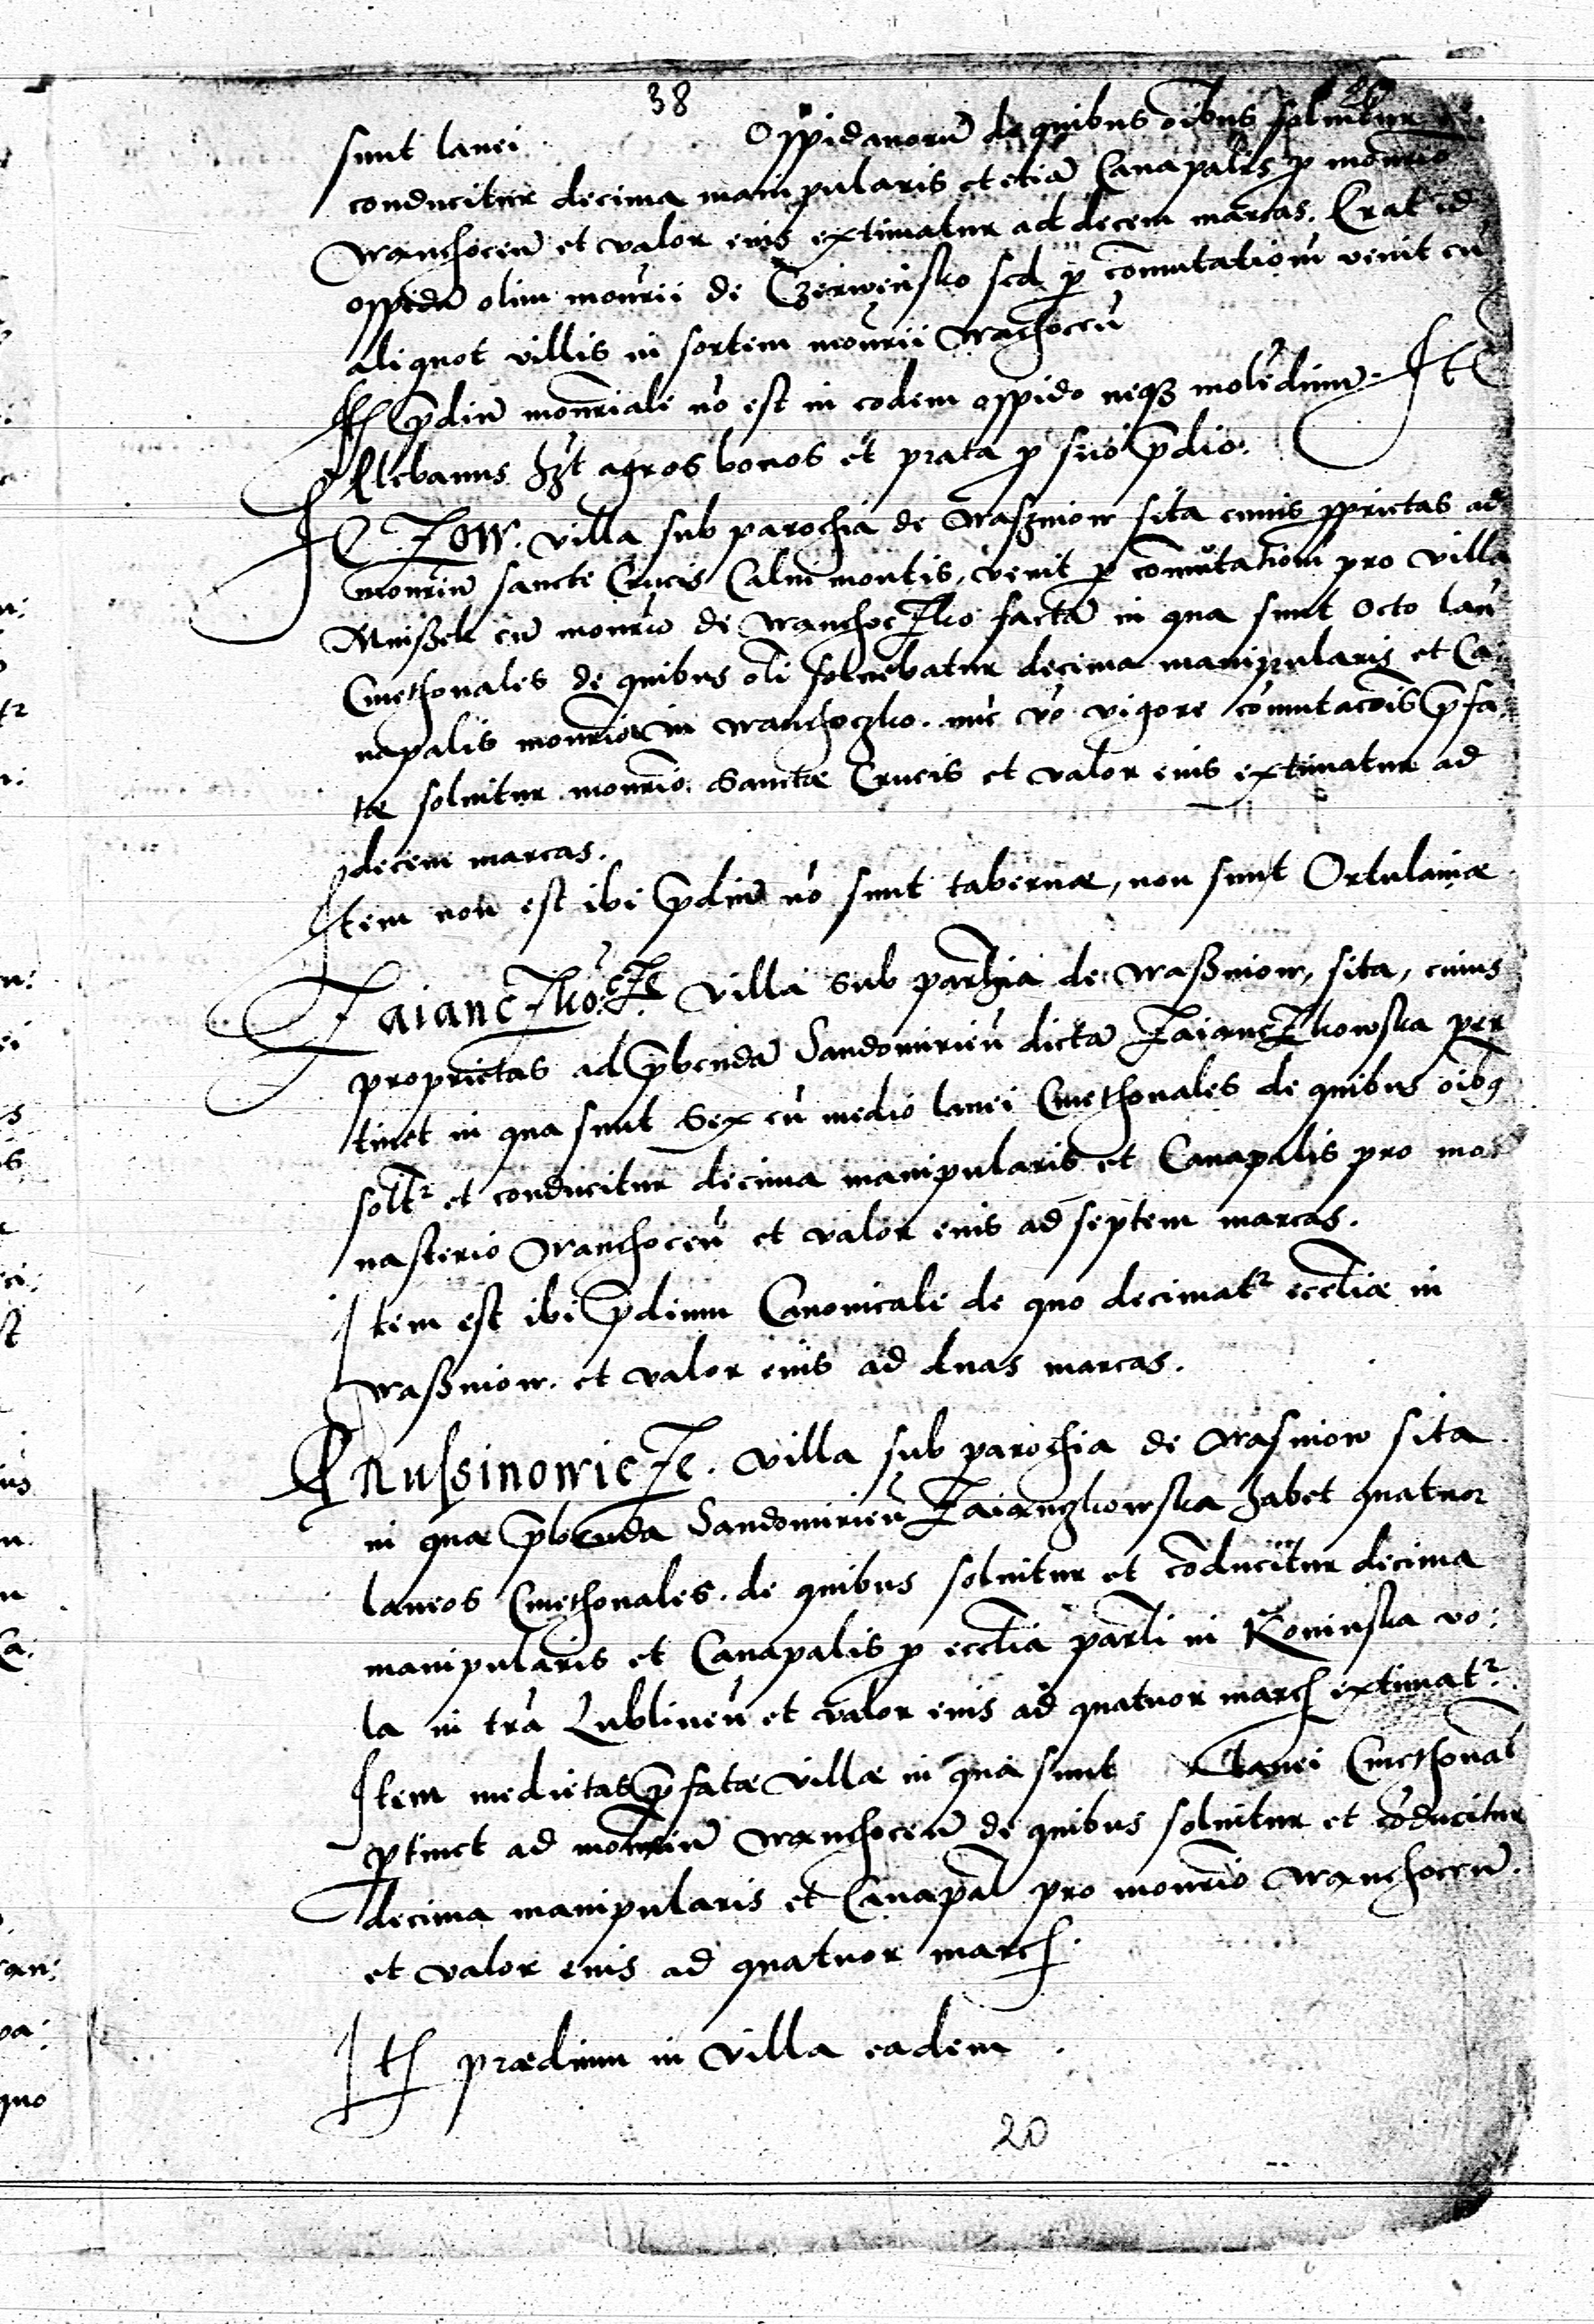 38
sunt lanei Oppidanorū de quibus oībus soluitur
conducitur decima manipularis et etiā Canapalis p mōnrio
Wanchoceñ et valor eius extimatur ad decem marcas. Erat id
oppidū olim monrii de Czerweńsko sed p commutationem venit cū
aliquot villis in sortem monrii Wachoceñ
Itē pdiū monriale nō est in eodem oppido neq3 molēdinum. Itē
Plebanus hzt agros bonos et prata p suo pdio.
villa sub parochia de Waszniow sita cuius pprietas ad
monriū sancte Crucis Calui montis, venit p commutationē pro villa
cū monrio de Wanchoczko factā in qua sunt Octo lan
Cmethonales de quibus oli soluebatur decima manipularis et Ca:
napalis monrio in Wanchoczko. nūc vo vigore cōmutacōis pfa
tæ soluitur monrio. Sanctæ Crucis et valor eius extimatur ad
decem marcas.
Item non est ibi pdiū nō sunt tabernæ, non sunt Ortulaniæ
Zaianczkowicze villa sub parhia de Waßniow, sita, cuius
proprietas ad pbendā Sandomirieñ dictā Zaianczkowska per
tinet in qua sunt Sex cū medio lanei Cmethonales de quibus oīb9
soltr et conducitur decima manipularis et Canapalis pro mo
nasterio Wanchoceñ et valor eius ad septem marcas.
Item est ibi pdium Canonicale de quo decimatr ecctiæ in
Waßniow. et valor eius ad duas marcas.
Prussinowicze. villa sub parochia de Wasniow sita
in qua pbenda Sandomirieñ Zaianczkowska habet quatuor
laneos Cmethonales. de quibus soluitur et cōducitur decima
manipularis et Canapalis p ecctia partli in Koninska vo:
la in trā Lublineñ et valor eius ad quatuor march extimatr
Item medietas pfatæ villæ in qua sunt lanei Cmethonal
ptinet ad monriū Wanchoceñ de quibus soluitur et cōducitur
decima manipularis et Canapal pro monrio Wanchoceñ.
et valor eius ad quatuor march.
Itē prædium in villa eadem
20